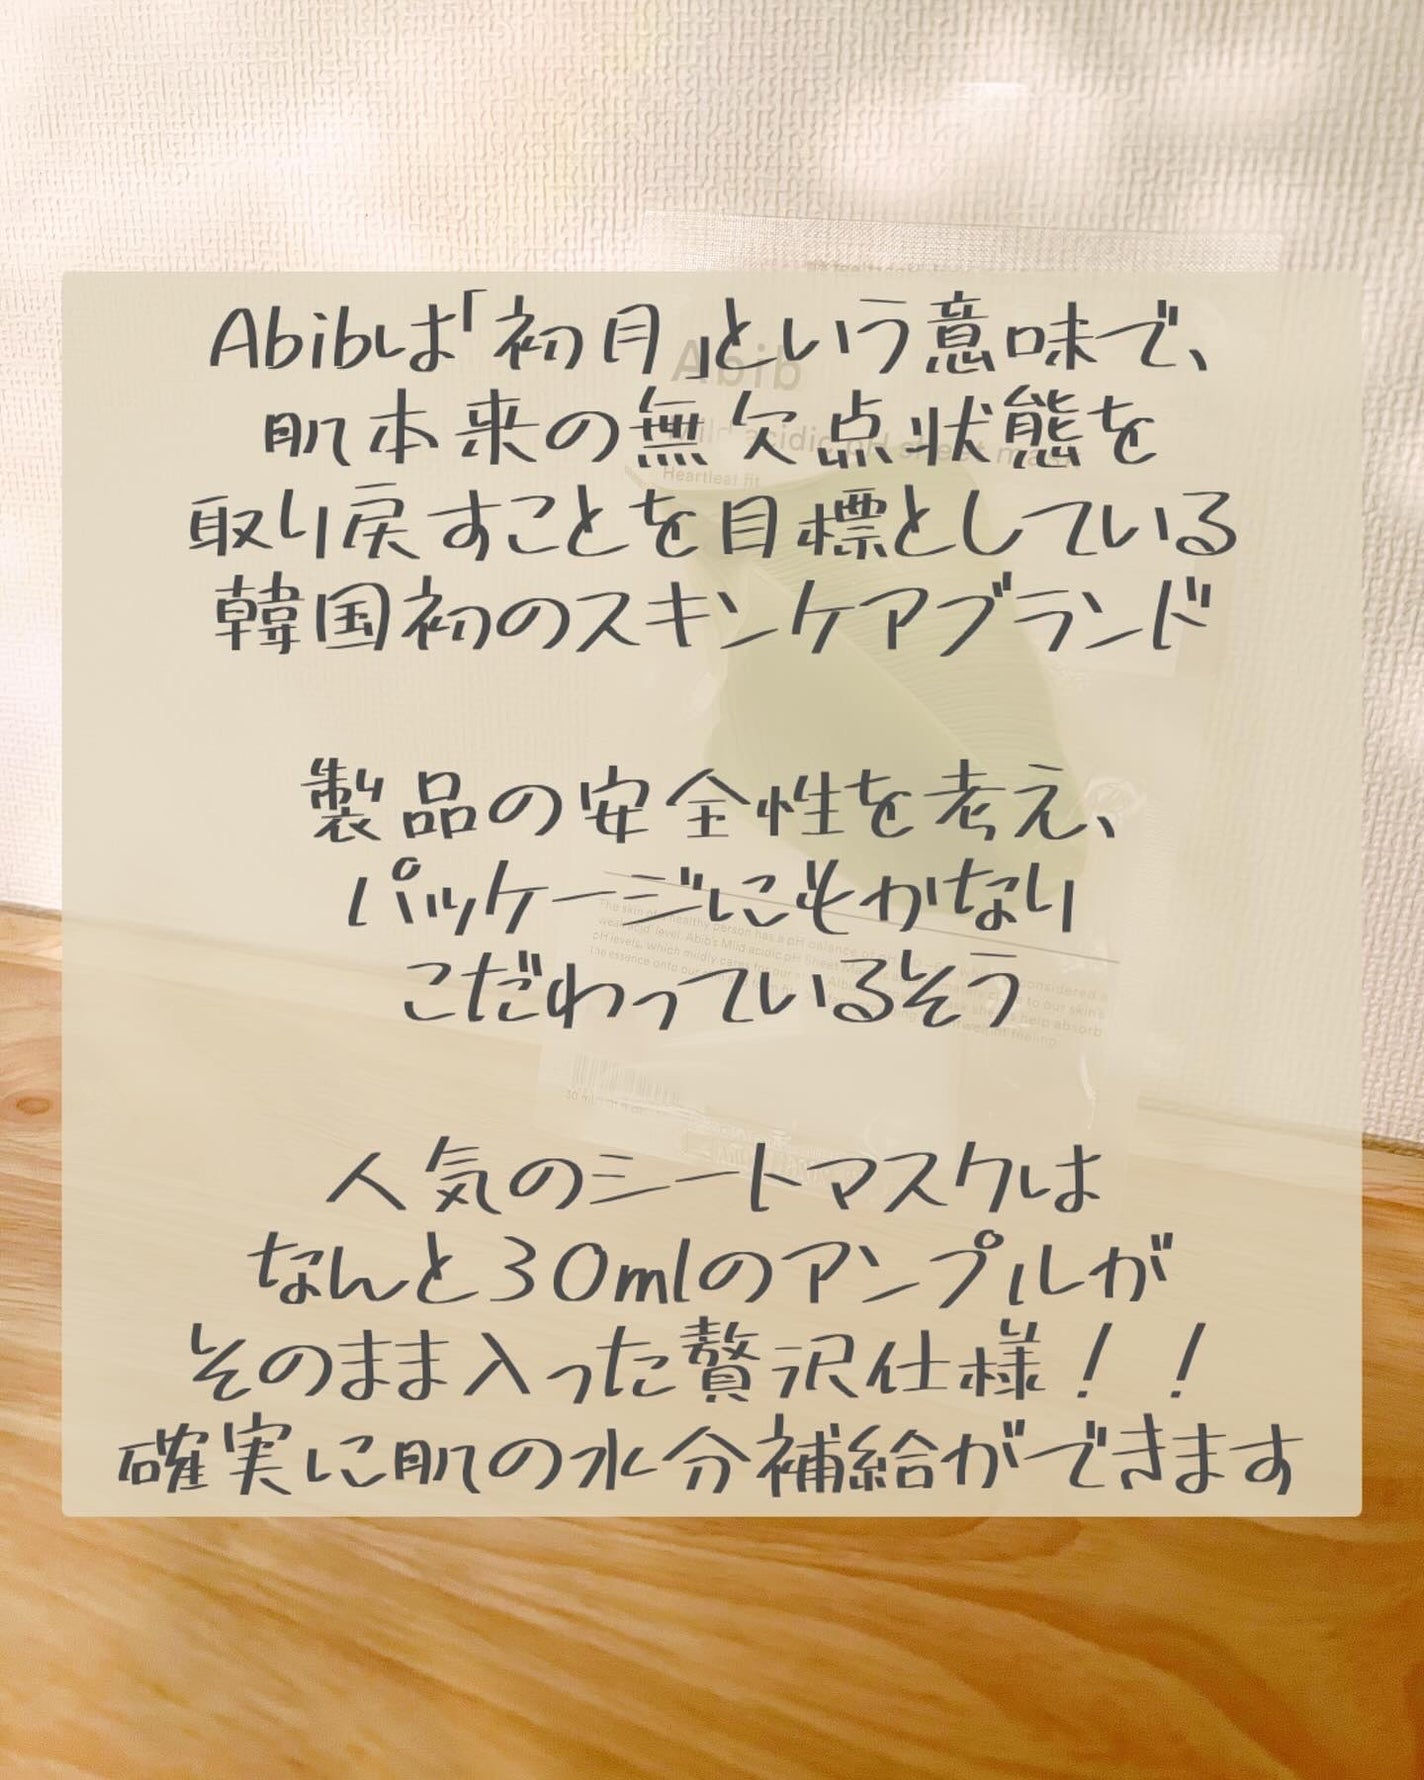 Abibは「初月」という意味で、
肌本来の無欠点状態を
取り戻すことを目標としている
韓国初のスキンケアブランド
製品の安全性を考え、
パッケージにもかなり
こだわっているそう
人気のシートマスクは
なんと30mlのアンプルが
そのまま入った贅沢仕様！！
確実に肌の水分補給ができます
Abib
Mild acidic pH sheet mask
Heartleaf fit